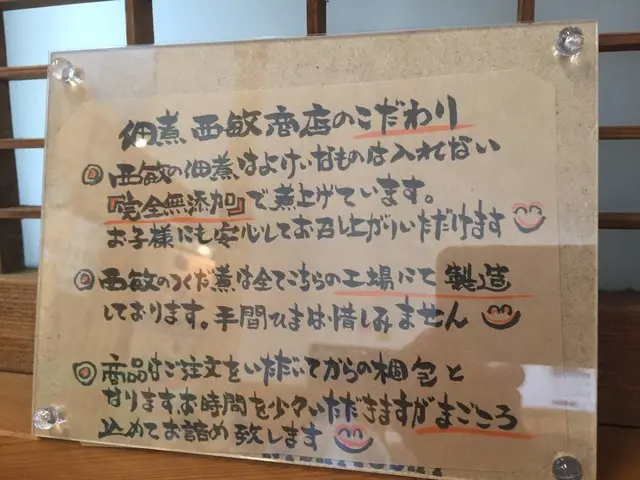 佃煮 西敏商店のこだわり
◎ 西敏の佃煮はよけいなものは入れてない
『完全無添加』で煮上げています。
お子様にも安心してお召し上がりいただけます
◎ 西敏のつくだ煮は全てこちらの工場にて製造
しております。手間ひまは惜しみません
◎ 商品はご注文をいただいてからの梱包と
なりますお時間を少々いただきますがまごころ
込めてお詰め致します